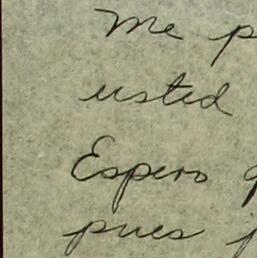 Me
usted
Espero
pues